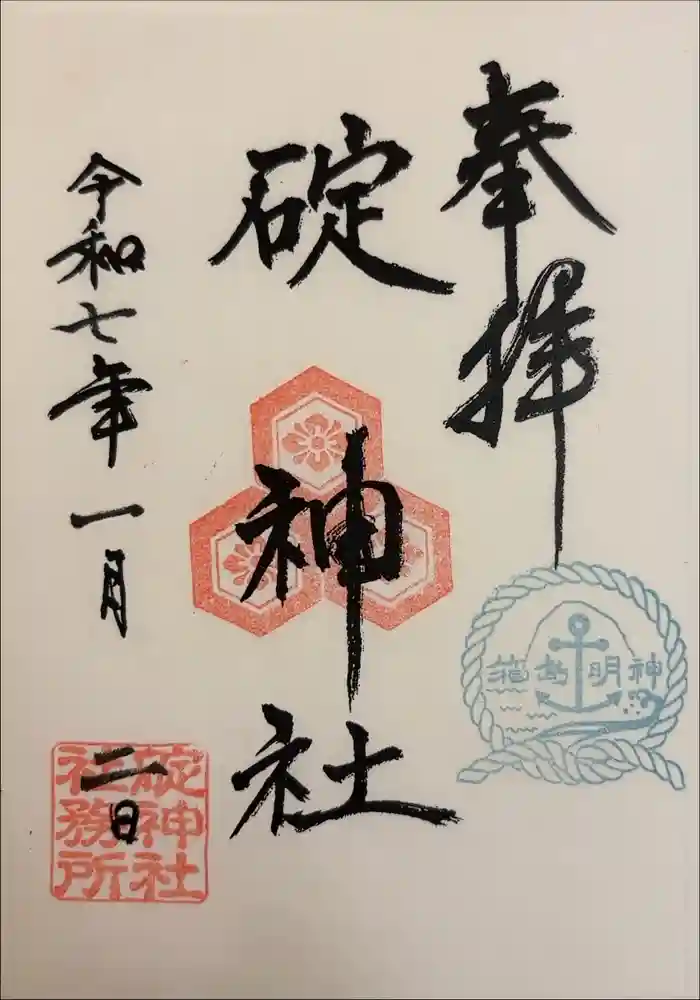 奉拝
碇神社
令和七年一月二日
神明島箱
碇神社
社務所